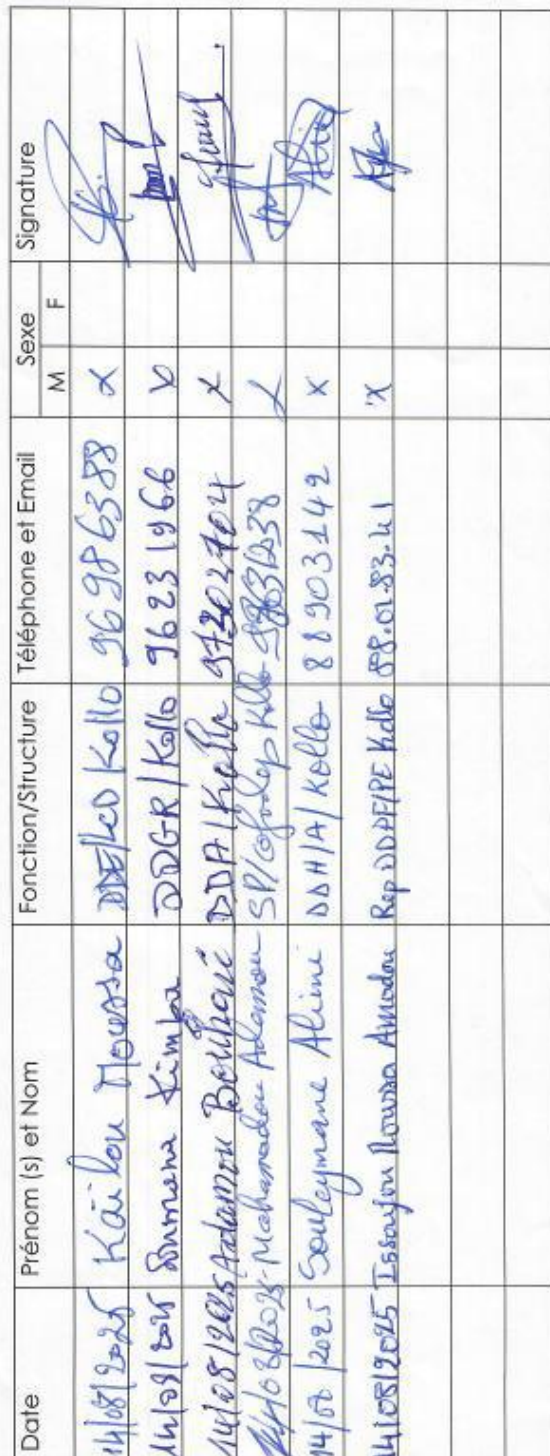 Date Prénom (s) et Nom Fonction/Structure Téléphone et Email Sexe Signature
M F
14/08/2025 Kaïlou Moussa DDE/LCD Kollo 96986388 x
14/08/2025 Soumana Kimba DDGR/Kollo 96231966 x
14/08/2025 Adamou Boubacar DDA/Kollo 97302704 x
14/08/2025 Mahamadou Adamou SP/Cofodep Kollo x
14/08/2025 Souleymane Alimi DDH/A/Kollo 88903142 x
14/08/2025 Issoufou Moussa Amadou Rep DDPF/PE Kollo 88.01.83.41 x